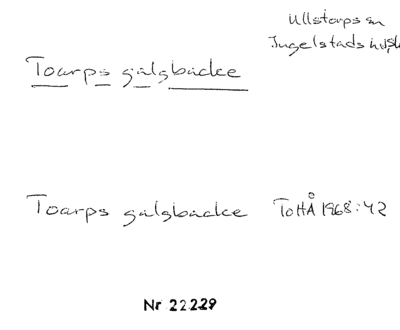 Ullstorps sn
Ingelstads
Toarps galgbacke
Toarps galgbacke ToHÅ 1968:42
Nr 22229